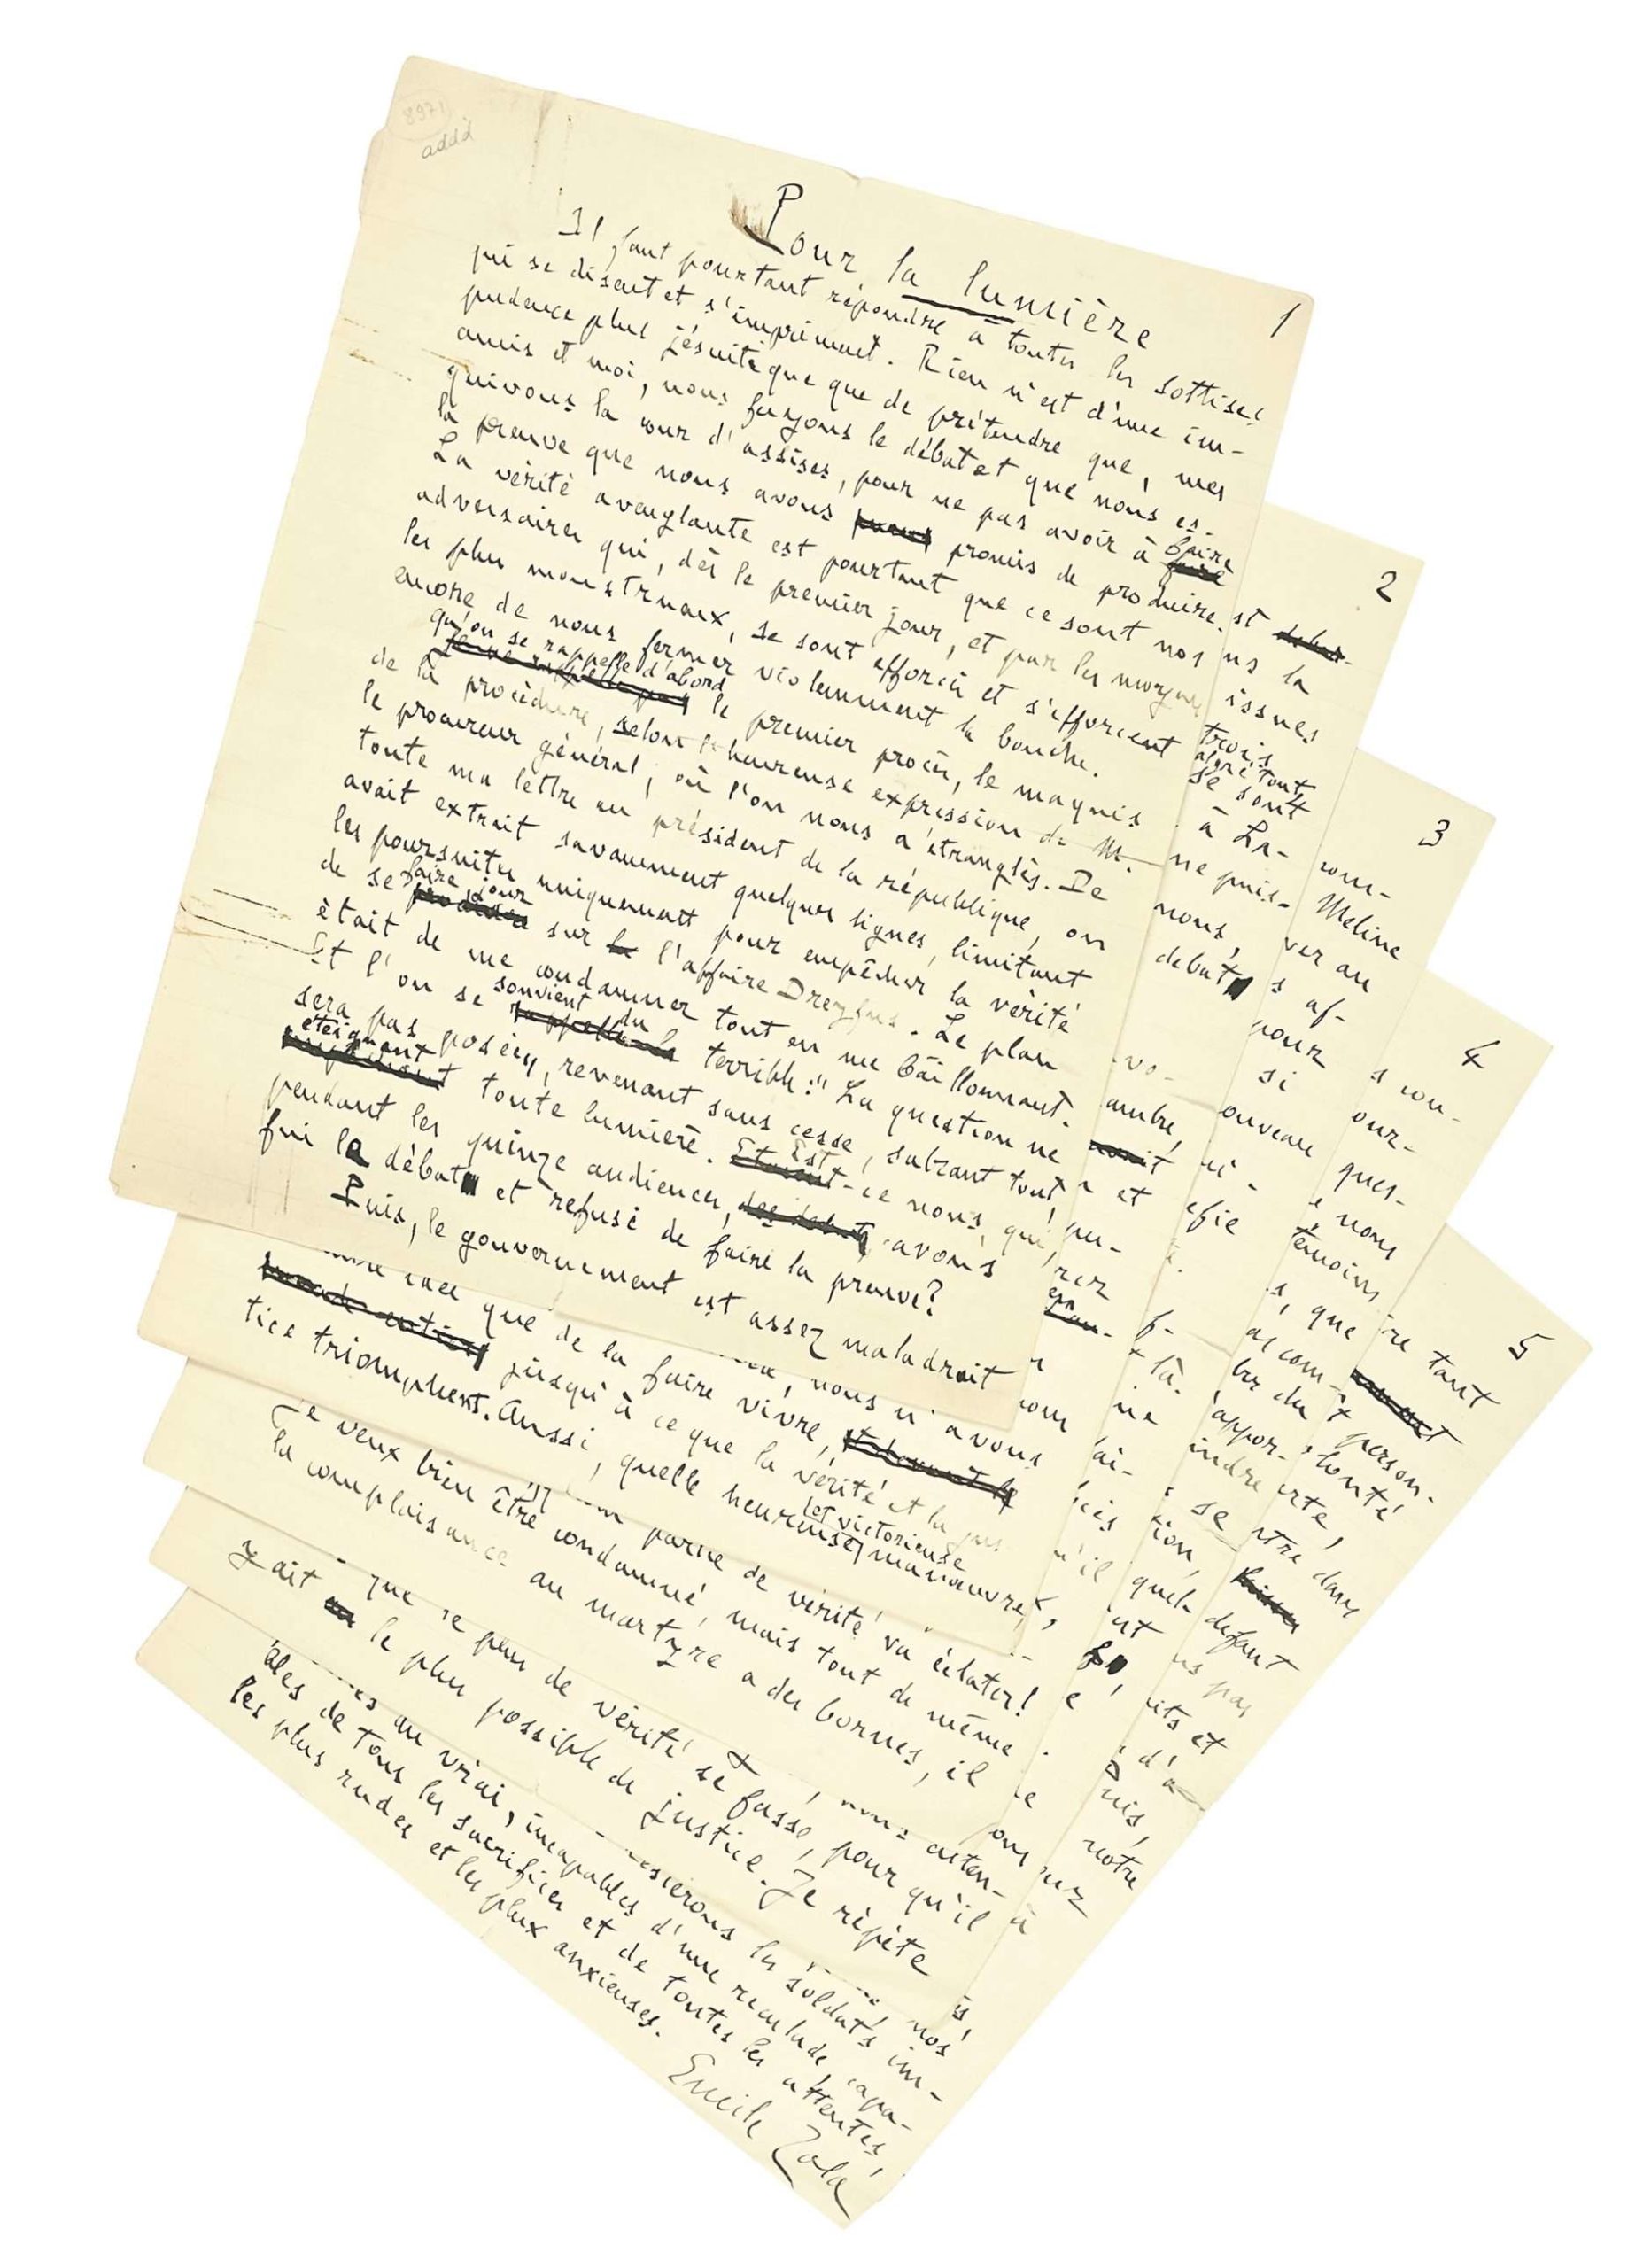 8971
add'd
Pour la lumière
1
Il faut pourtant répondre à toutes les sottises
qui se disent et s'impriment. Rien n'est d'une im-
pudence plus jésuitique que de prétendre que, mes
amis et moi, nous fuyons le débat et que nous es-
quivons la cour d'assises, pour ne pas avoir à faire
la preuve que nous avons promis de produire.
La vérité aveuglante est pourtant que ce sont nos
adversaires qui, dès le premier jour, et par les moyens
les plus monstrueux, se sont efforcés et s'efforcent
encore de nous fermer violemment la bouche.
qu'on se rappelle d'abord le premier procès, le maquis
de la procédure, selon l'heureuse expression de M.
le procureur général, où l'on nous a étranglés. De
toute ma lettre au président de la république, on
avait extrait savamment quelques lignes, limitant
les poursuites uniquement pour empêcher la vérité
de se faire jour sur l'affaire Dreyfus. Le plan
était de me condamner tout en me bâillonnant.
Et l'on se souvient du terrible: "La question ne
sera pas posée", revenant sans cesse, sabrant tout,
éteignant toute lumière. Est-ce nous, qui,
pendant les quinze audiences, avons
fui le débat et refusé de faire la preuve?
Puis, le gouvernement est assez maladroit
2
st
ns la
issues
trois
alors tout
se sont
à La-
ne puis-
nous,
debat
-vo-
ambre,
et
pu-
rer
nous n'avons
que de la faire vivre,
jusqu'à ce que la vérité et la jus
tice triomphent. Aussi, quelle heureuse et victorieuse manœuvre,
3
com-
Méline
ver au
s af-
pour
si
ouveau
ni-
efie
là.
ne
parne de vérité va éclater!
Je veux bien être condamné, mais tout de même
la complaisance au martyre a des bornes, il
4
s con-
our-
ques-
e nous
témoins
s, que
as com-
bre du
appor-
indre
se
tion,
quel-
que ce peu de vérité se fasse, pour qu'il
y ait le plus possible de justice. Je répète
5
re tant
t person-
lonté
erte,
ntré dans
defaut
us pas
its et
d'a-
uis,
notre
nous atten-
à
s, nos
esserons les soldats im-
ables du vrai, incapables d'une reculade, capa-
bles de tous les sacrifices et de toutes les attentes,
les plus rudes et les plus anxieuses.
Emile Zola